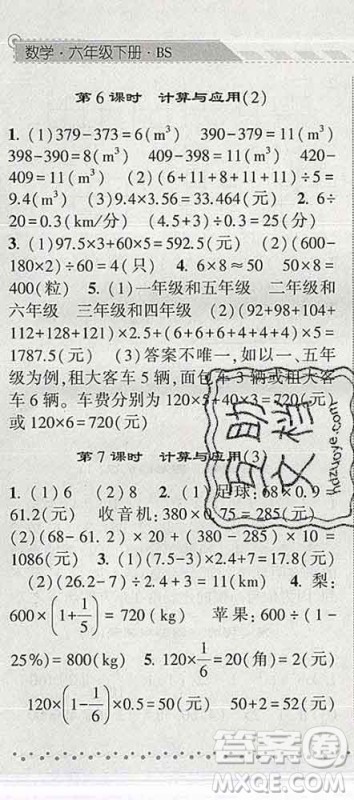 数学·六年级下册·BS
第6课时 计算与应用(2)
1. (1)379-373=6(m³) 390-379=11(m³)
398-390=8(m³) 409-398=11(m³) 420-
409=11(m³) (2)(6+11+8+11+11)÷5=
9.4(m³) (3)9.4×3.56=33.464(元) 2. 6÷
20=0.3(km/分) (4.5+3)÷0.3=25(分)
3. (1)97.5×3+60×5=592.5(元) (2)(600-
180×2)÷60=4(只) 4. 6×8≈50 50×8=
400(粒) 5. (1)一年级和五年级 二年级和
六年级 三年级和四年级 (2)(92+98+104+
112+128+121)×(6+6+4+4+4+3)×0.5=
1787.5(元) (3)答案不唯一,如以一、五年级
为例,租大客车5辆,面包车3辆或租大客
车6辆。车费分别为120×5+40×3=720(元)
或120×6=720(元)
第7课时 计算与应用(3)
1. (1)6 (2)8 2. (1)足球:68×0.9
61.2(元) 收音机:380×0.75=285(元)
(2)(68-61.2)×20+(380-285)×10=
1086(元) 3. (1)(7.5-3)×2.4+7=17.8(元)
(2)(26.2-7)÷2.4+3=11(km) 4. 梨:
600×(1+1/5)=720(kg) 苹果:600÷(1-
25%)=800(kg) 5. 120×1/6=20(角)=2(元)
120×(1-1/6)×0.5=50(元) 50+2=52(元)
互助文档
hdzuoye.com
作业答案圈
MXQE.COM